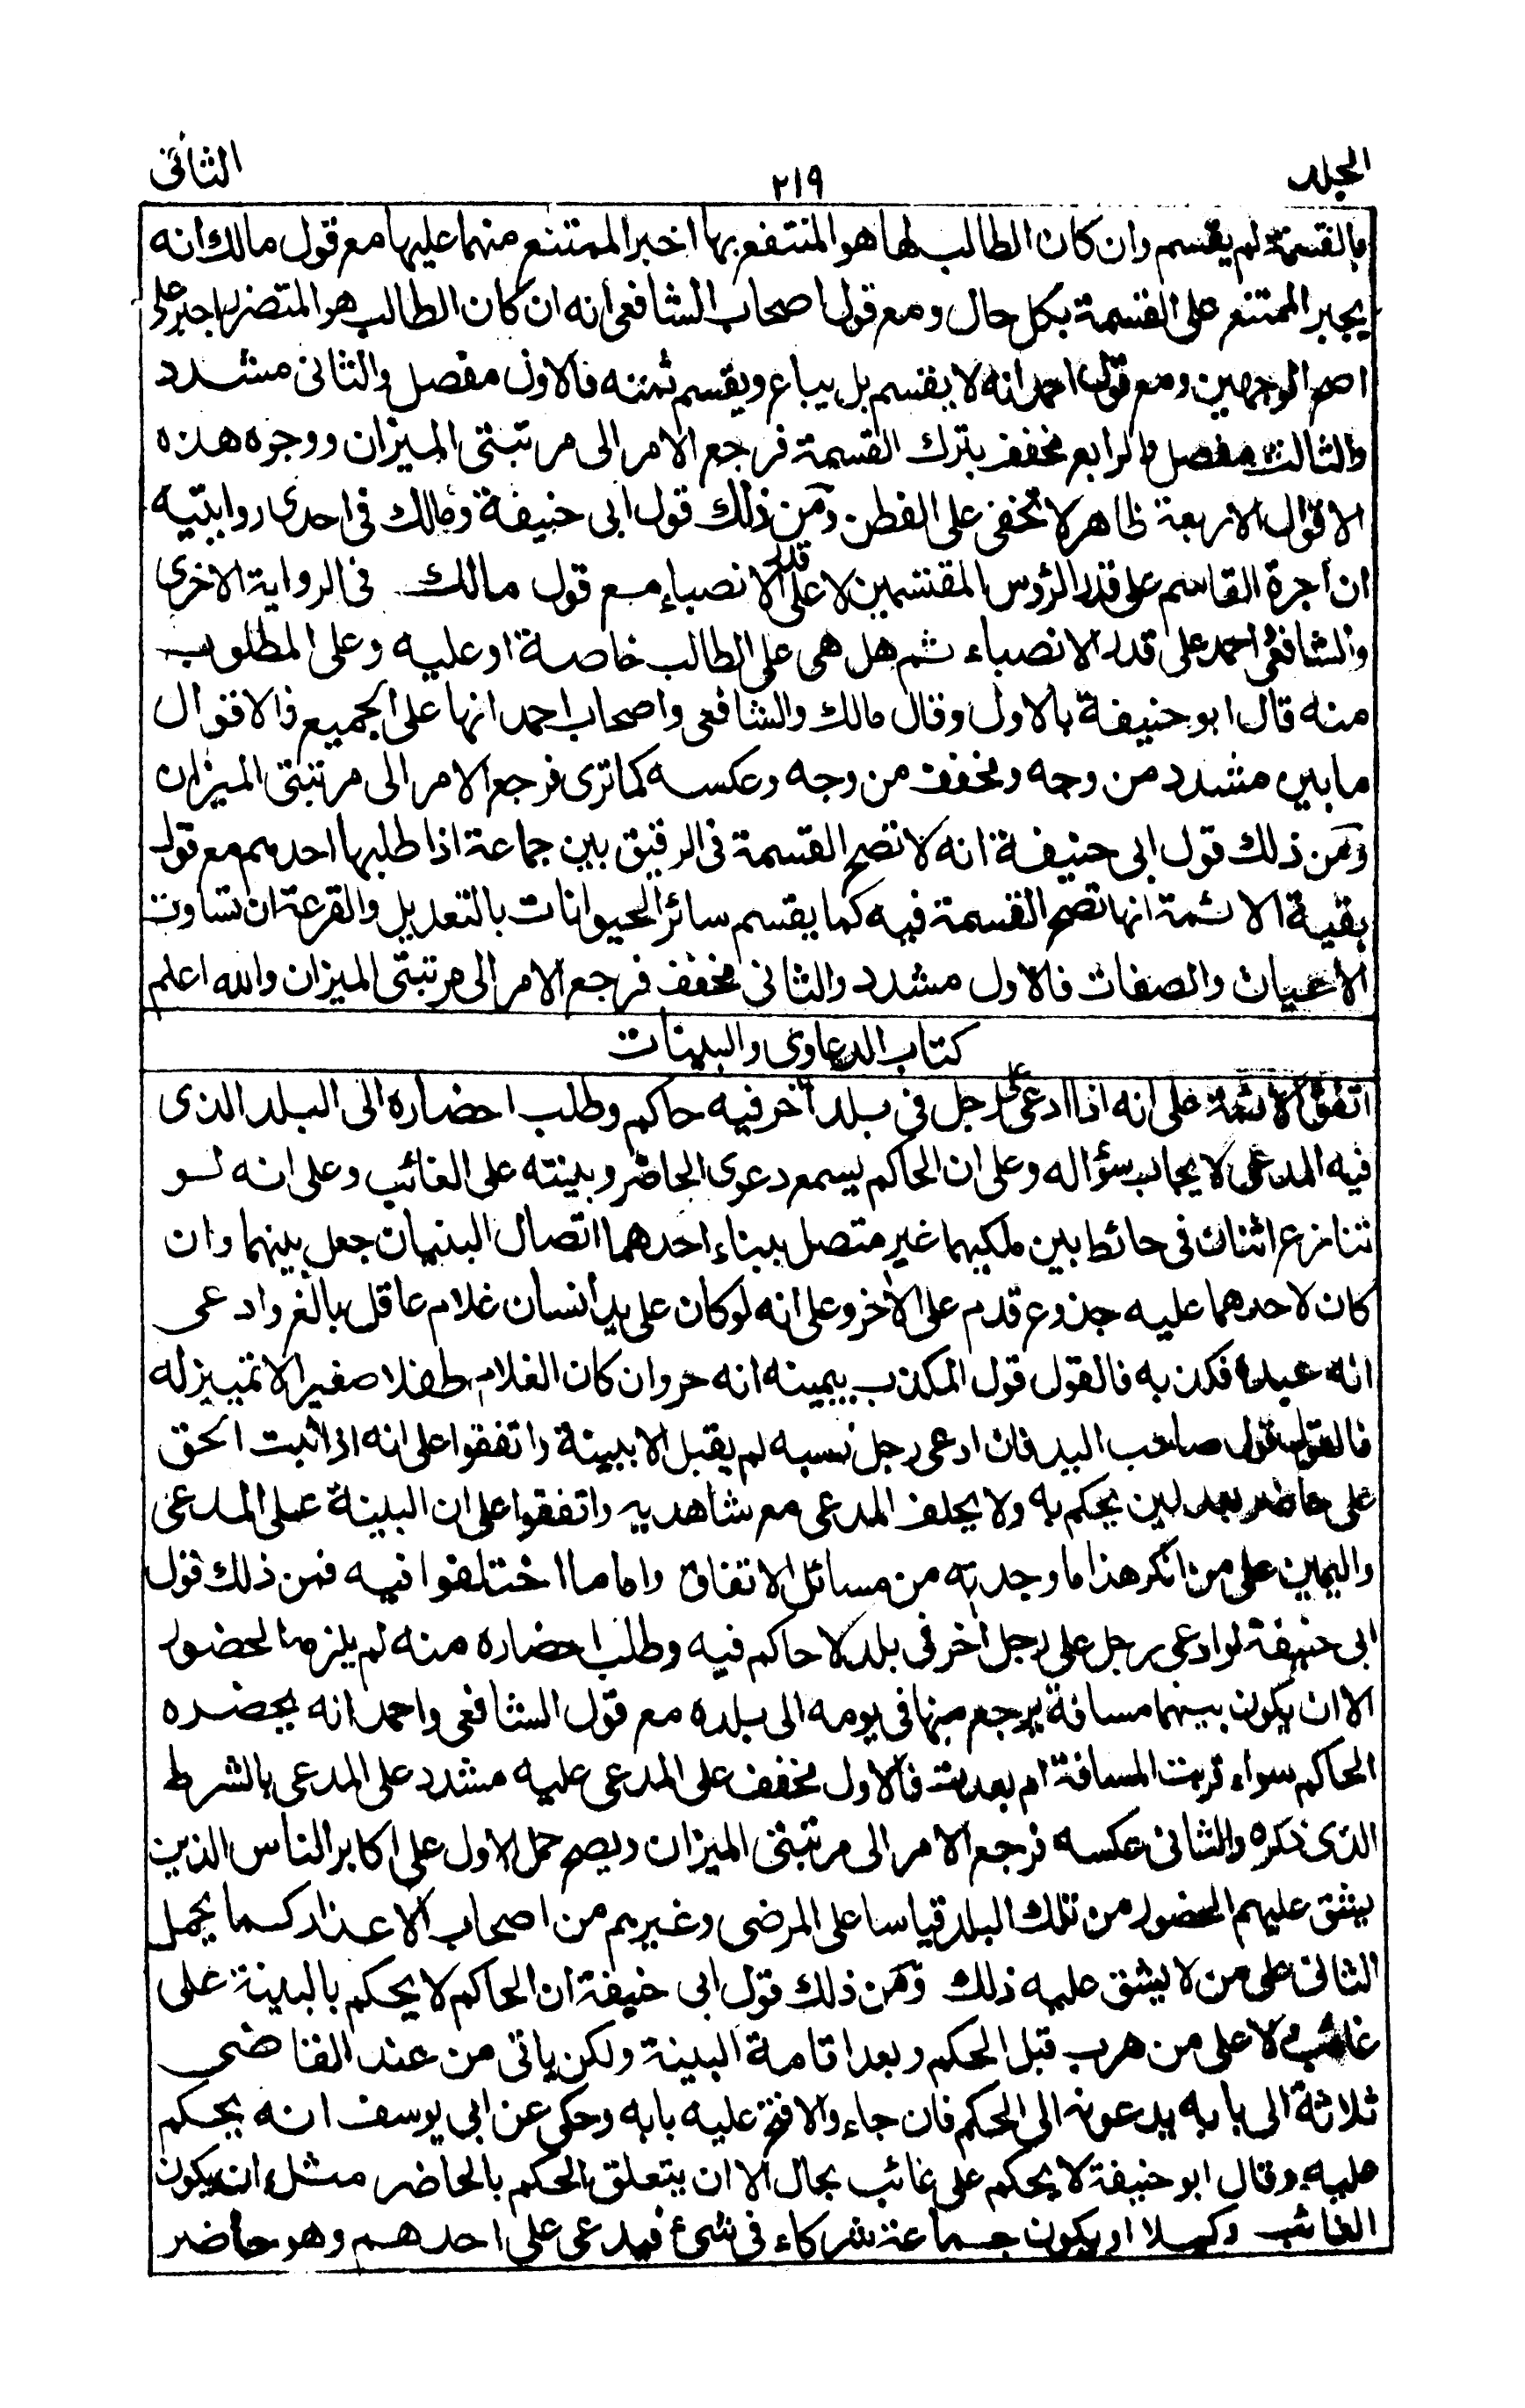 الجلد ٢١٩ الثانى
بالقسمة لم يقسم وان كان الطالب لها هو المنتفع بها اخبر الممتنع منهما عليها مع قول مالك انه
يجبر الممتنع على القسمة بكل حال ومع قول اصحاب الشافعى انه ان كان الطالب هو المتضرر اجبر على
اصح الوجهين ومع قول احمد انه لا يقسم بل يباع ويقسم ثمنه فالاول مفصل والثانى مشدد
والثالث مفصل والرابع مخفف بترك القسمة فرجع الامر الى مرتبتى الميزان ووجوه هذه
الاقوال الاربعة ظاهر لا تخفى على الفطن ومن ذلك قول ابى حنيفة ومالك فى احدى روايتيه
ان أجرة القاسم على قدر الرؤس المقتسمين لا على قدر الانصباء مع قول مالك فى الرواية الاخرى
والشافعى احمد على قدر الانصباء ثم هل هى على الطالب خاصة او عليه وعلى المطلوب
منه قال ابو حنيفة بالاول وقال مالك والشافعى واصحاب احمد انها على الجميع فالاقوال
ما بين مشدد من وجه ومخفف من وجه وعكسه كما ترى فرجع الامر الى مرتبتى الميزان
ومن ذلك قول ابى حنيفة انه لا تصح القسمة فى الرقيق بين جماعة اذا طلبها احدهم مع قول
بقية الائمة انها تصح القسمة فيه كما يقسم سائر الحيوانات بالتعديل والقرعة ان تساوت
الاعيان والصفات فالاول مشدد والثانى مخفف فرجع الامر الى مرتبتى الميزان والله اعلم
كتاب الدعاوى والبينات
اتفق الائمة على انه اذا ادعى على رجل فى بلد آخر فيه حاكم وطلب احضاره الى البلد الذى
فيه المدعى لا يجاب سؤاله وعلى ان الحاكم يسمع دعوى الحاضر وبينته على الغائب وعلى انه لو
تنازع اثنان فى حائط بين ملكيهما غير متصل ببناء احدهما اتصال البنيان جعل بينهما وان
كان لاحدهما عليه جذوع قدم على الآخر وعلى انه لو كان على يد انسان غلام عاقل بالغ وادعى
انه عبده فكذبه فالقول قول المكذب بيمينه انه حر وان كان الغلام طفلا صغيرا لا تمييز له
فالقول قول صاحب اليد فان ادعى رجل نسبه لم يقبل الا ببينة واتفقوا على انه اذا ثبت الحق
على حاضر بعدلين يحكم به ولا يحلف المدعى مع شاهديه واتفقوا على ان البينة على المدعى
واليمين على من انكر هذا ما وجدته من مسائل الاتفاق واما ما اختلفوا فيه فمن ذلك قول
ابى حنيفة لو ادعى رجل على رجل آخر فى بلد لا حاكم فيه وطلب احضاره منه لم يلزمه الحضور
الا ان يكون بينهما مسافة يرجع منها فى يومه الى بلده مع قول الشافعى واحمد انه يحضره
الحاكم سواء قربت المسافة ام بعدت فالاول مخفف على المدعى عليه مشدد على المدعى بالشرط
الذى ذكره والثانى عكسه فرجع الامر الى مرتبتى الميزان ويصح حمل الاول على اكابر الناس الذين
يشق عليهم الحضور من تلك البلد قياسا على المرضى وغيرهم من اصحاب الاعذار كما يحمل
الثانى على من لا يشق عليه ذلك ومن ذلك قول ابى حنيفة ان الحاكم لا يحكم بالبينة على
غائب لا على من هرب قبل الحكم وبعد اقامة البينة ولكن ياتى من عند القاضى
ثلاثة الى بابه يدعونه الى الحكم فان جاء والا فتح عليه بابه وحكى عن ابى يوسف انه يحكم
عليه وقال ابو حنيفة لا يحكم على غائب بحال الا ان يتعلق الحكم بالحاضر مثل ان يكون
الغائب وكيلا او يكون جماعة شركاء فى شىء فيدعى على احدهم وهو حاضر